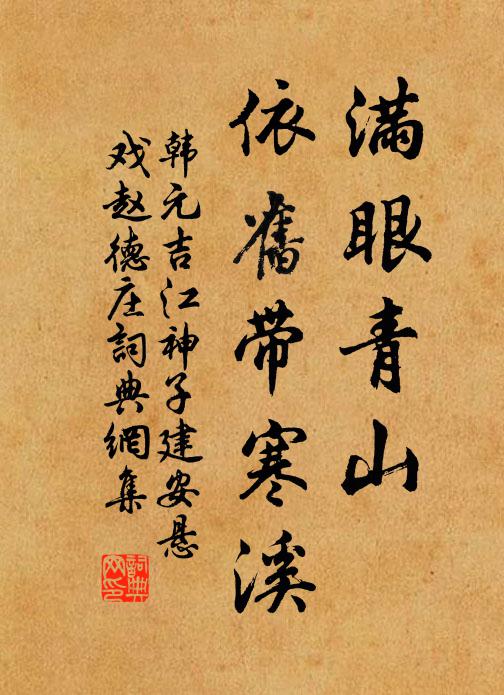 滿眼青山
依舊带寒溪
韩元吉江神子建安悬
戏赵德庄詞典網集
詞典網印